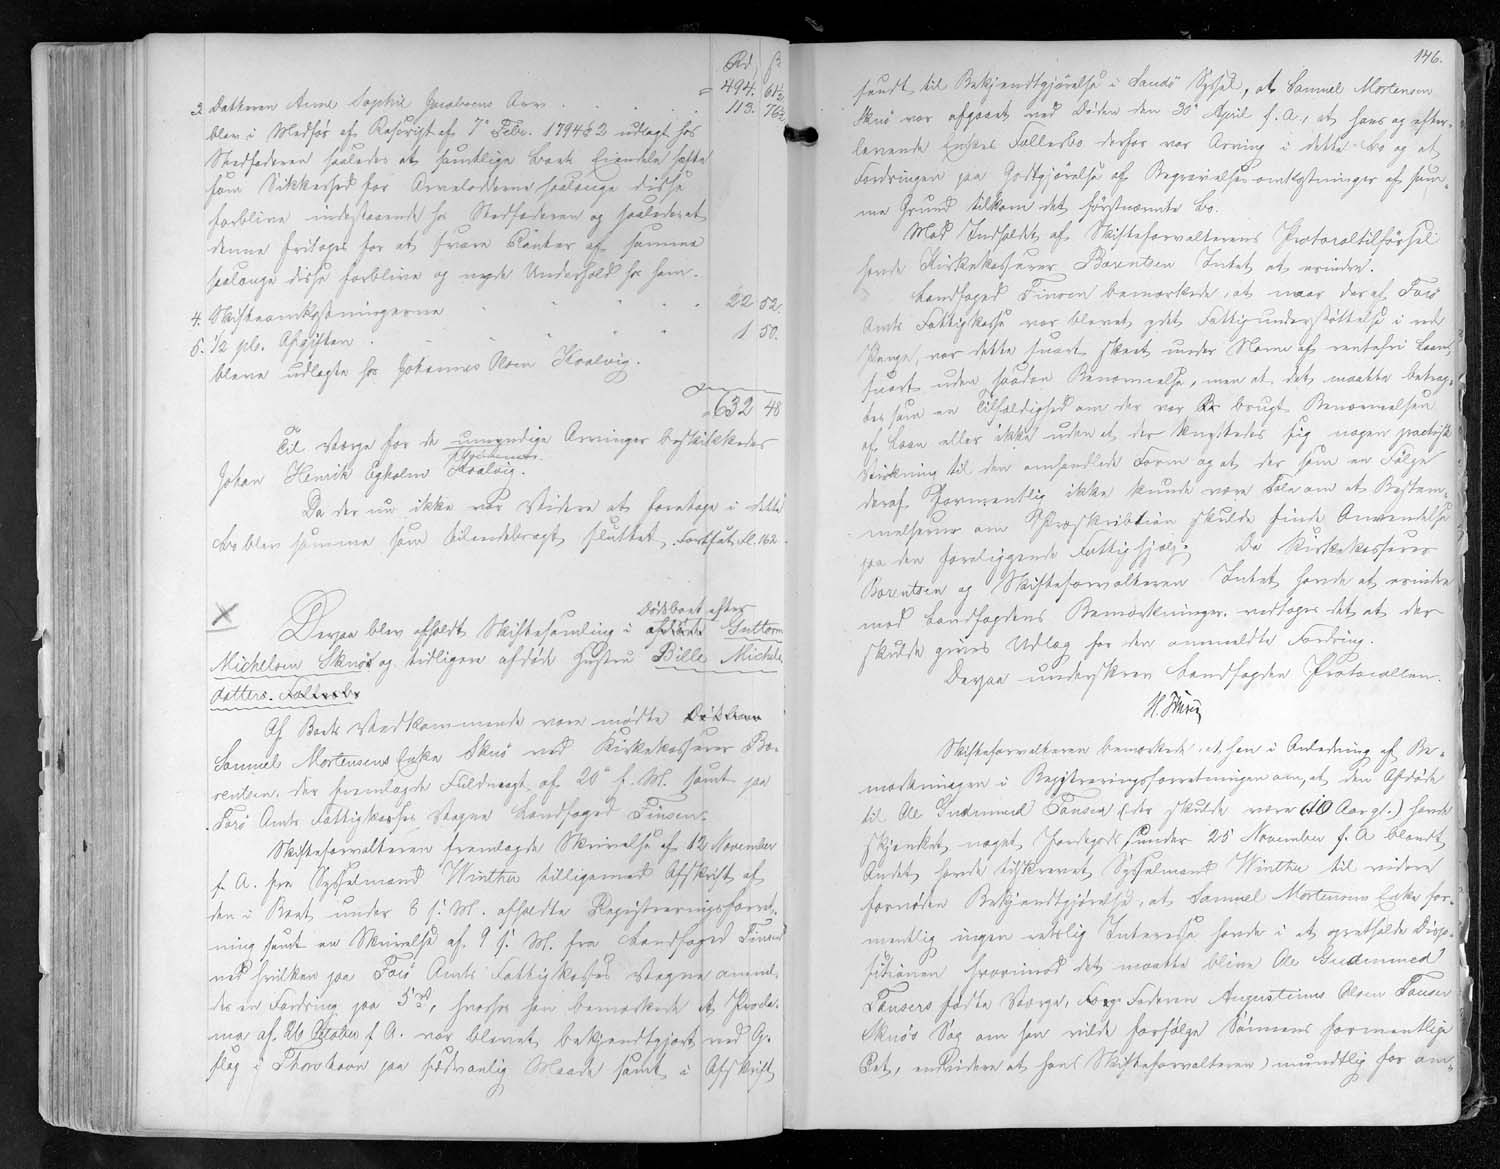 Rd. ß
494. 61½
3. Datteren Anne Sophie Jacobsens Arv . . . . 113. 76½
blev i Medfør af Reskript af 7de Febr. 1794 § 2 udlagt hos
Stedfaderen saaledes at samtlige Boets Eiendele hefte
som Sikkerhed for Arvelodderne saalænge disse
forblive indestaaende hos Stedfaderen og saaledes at
denne fritages for at svare Renter af samme
saalænge disse forblive og nyde Underhold hos ham.
4. Skifteomkostningerne " " " " 22 52.
5. ½ pCt. Afgiften . " " " " 1 50.
bleve udlagte hos Johannes Olsen Hvalvig.
632 48
Til Værge for de umyndige Arvinger beskikkedes
Johan Henrik Egholm Hvalvig.
Da der nu ikke var Videre at foretage i dette
Bo blev samme som tilendebragt sluttet. Fortsat Fl. 162.
Derpaa blev afholdt Skiftesamling i Dødsboet efter Guttorm
Michelsen Skuø og tidligere afdøde Hustru Bille Michels
datters. Fællesbo
Af Boets Vedkommende vare mødte
Samuel Mortensens Enke Skuø ved Kirkekasserer Ba-
rentsen, der fremlagde Fuldmagt af 20de f. M. samt paa
Færø Amts Fattigkasses Vegne Landfoged Finsen.
Skifteforvalteren fremlagde Skrivelse af 12 November
f. A. fra Sysselmand Winther tilligemed Afskrift af
den i Boet under 8 s. M. afholdte Registreringsforret-
ning samt en Skrivelse af 9 s. M. fra Landfoged Finsen
ved hvilken paa Færø Amts Fattigkasses Vegne anmeld-
tes en Fordring paa 5 Rd, hvorhos han bemærkede at Procla-
ma af 26 October f. A. var blevet bekjendtgjort ved Op-
slag i Thorshavn paa sædvanlig Maade samt i Afskrift
146.
sendt til Bekjendtgjørelse i Sandø Syssel, at Samuel Mortensen
Skuø var afgaaet ved Døden den 30te April f. A., at hans og efter-
levende Enkes Fællesbo derfor var Arving i dette Bo og at
Fordringen paa Godtgjørelse af Begravelsesomkostninger af sam-
me Grund tilkom det førstnævnte Bo.
Mod Indholdet af Skifteforvalterens Protocoltilførsel
havde Kirkekasserer Barentsen Intet at erindre.
Landfoged Finsen bemærkede, at naar der af Færø
Amts Fattigkasse var blevet ydet Fattigunderstøttelse i rede
Penge, var dette snart skeet under Navn af rentefri Laan,
snart uden saadan Benævnelse, men at det maatte betrag-
tes som en Tilfældighed om der var brugt Benævnelsen
af Laan eller ikke uden at der knyttedes sig nogen practisk
Virkning til den omhandlede Form og at der som en Følge
deraf formentlig ikke kunde være Tale om at Bestem-
melserne om Præskribtion skulde finde Anvendelse
paa den foreliggende Fattighjælp. Da Kirkekasserer
Barentsen og Skifteforvalteren Intet havde at erindre
mod Landfogdens Bemærkninger, vedtoges det at der
skulde gives Udlæg for den anmeldte Fordring.
Derpaa underskrev Landfogden Protocollen.
H. Finsen
Skifteforvalteren bemærkede, at han i Anledning af Be-
mærkningen i Registreringsforretningen om, at den Afdøde
til Ole Gudmund Joensen (der skulde være 10 Aar gl.) havde
skjænket noget Jordegods, under 25 November f. A. blandt
Andet havde tilskrevet Sysselmand Winther til videre
fornøden Bekjendtgjørelse, at Samuel Mortensens Enke for-
mentlig ingen retslig Interesse havde i at opretholde Dispo-
sitionen hvorimod det maatte blive Ole Gudmund
Joensens fødte Værge, Faderen Augustinus Olsen Joensen
Skuøs Sag om han vilde forfølge Sønnens formentlige
Ret, endvidere at han (Skifteforvalteren) mundtlig for om-